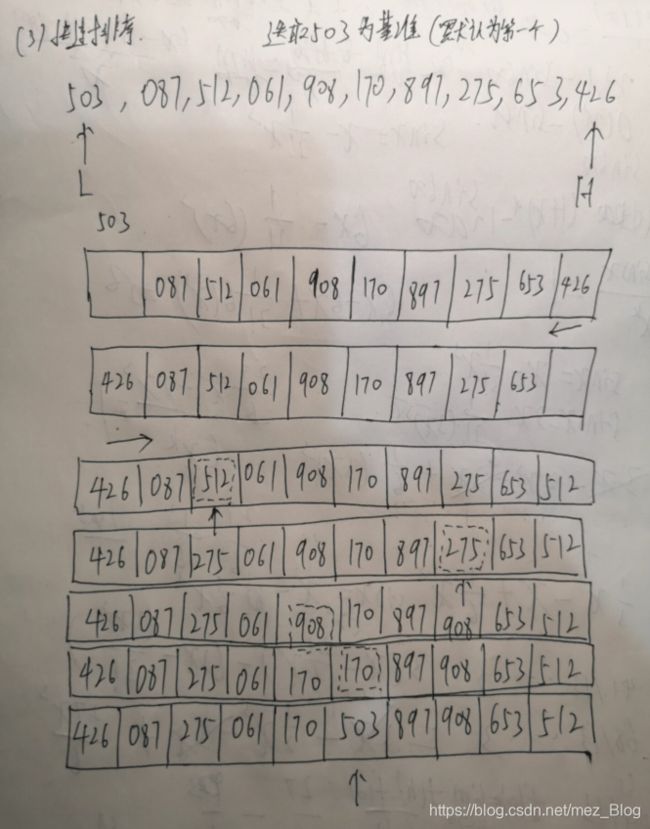 (3)快速排序. 选取503为基准(默认为第一个)
503, 087, 512, 061, 908, 170, 897, 275, 653, 426
↑ ↑
L H
503
087 512 061 908 170 897 275 653 426
←
426 087 512 061 908 170 897 275 653
→
426 087 512 061 908 170 897 275 653 512
↑
426 087 275 061 908 170 897 275 653 512
↑
426 087 275 061 908 170 897 908 653 512
426 087 275 061 170 170 897 908 653 512
426 087 275 061 170 503 897 908 653 512
↑
https://blog.csdn.net/mez_Blog